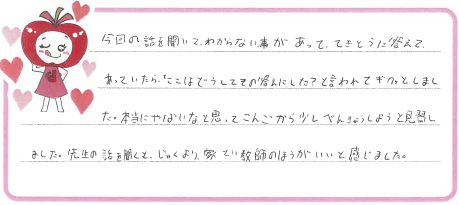 今回の話を聞いて、わからない事があって、てきとうに答えて、
あっていたら、「ここはどうしてその答えにした？と言われてギクッとしまし
た。本当にやばいなと思ってこんごから少しべんきょうしようと見習し
ました。先生の話を聞くと、じゅくより、家てい教師のほうがいいと感じました。